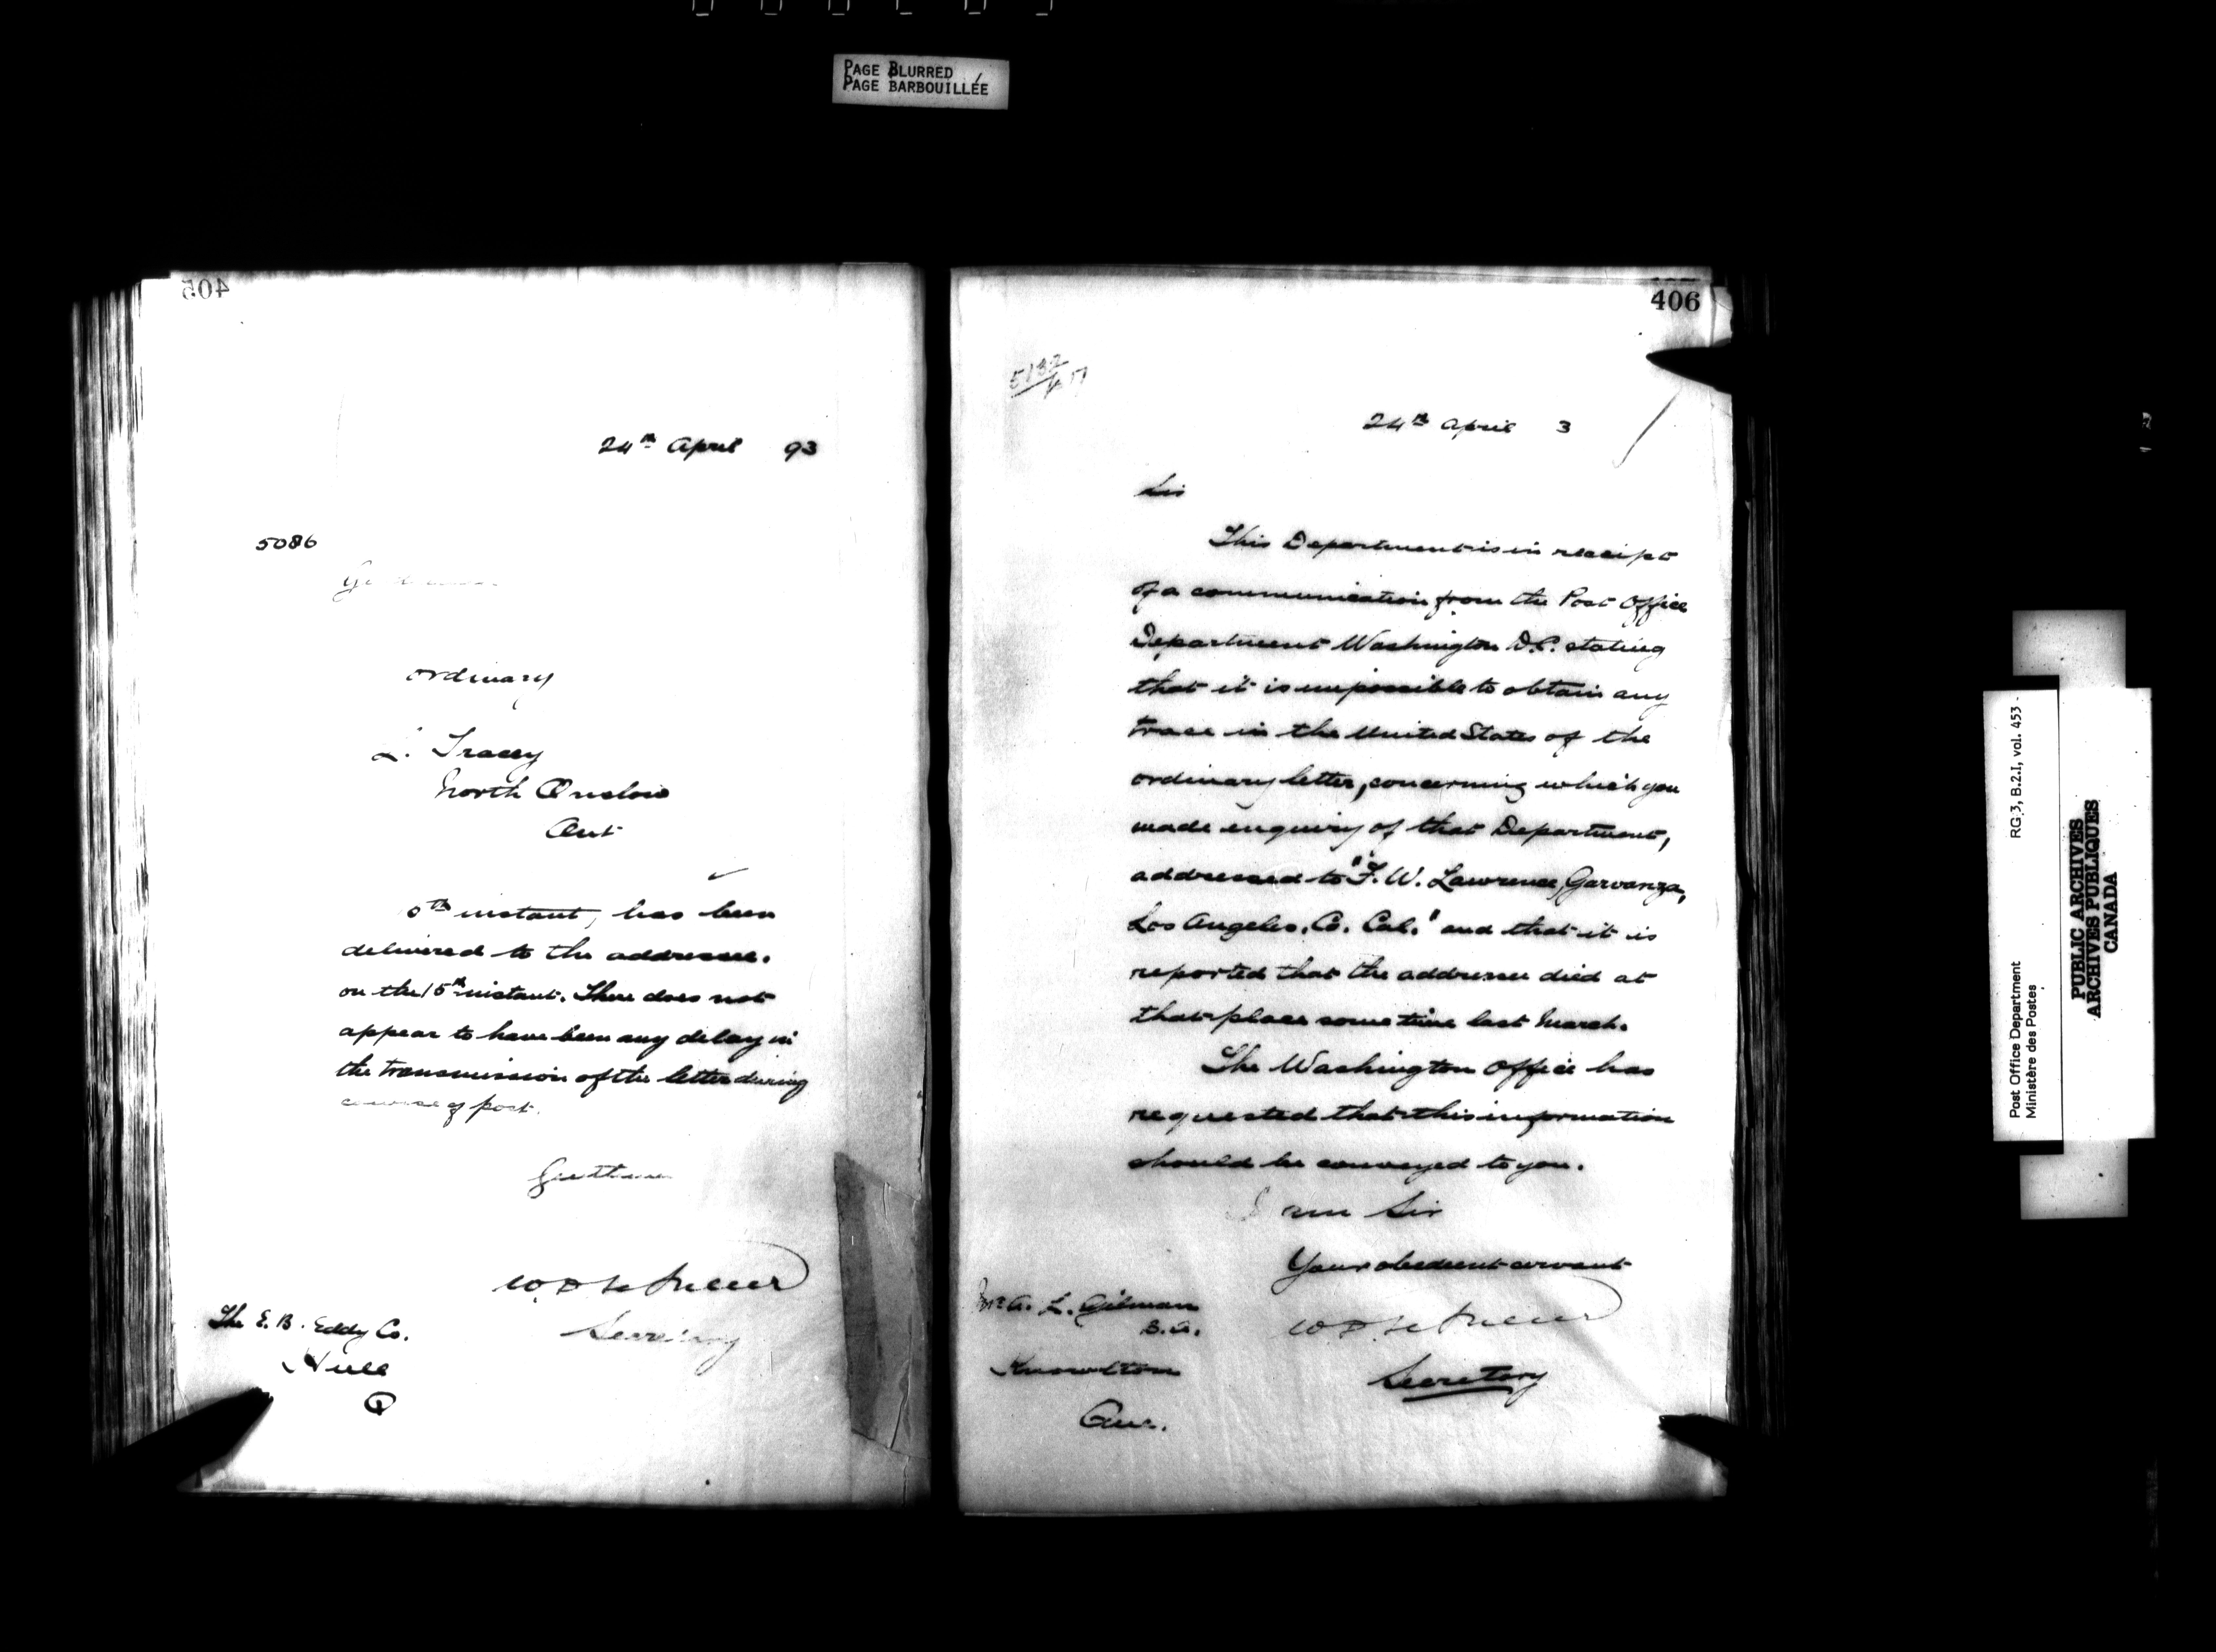 PAGE BLURRED
PAGE BARBOUILLÉE
405
24th April 93
5086
ordinary
L. Tracey
North Onslow
Ont
5th instant, has been
delivered to the addressee.
on the 15th instant. There does not
appear to have been any delay in
the transmission of the letter during
course of post.
Gentlemen
Secretary
The E. B. Eddy Co.
Hull
Q
406
5132
24th April 3
Sir
This Department is in receipt
of a communication from the Post Office
Department Washington D.C. stating
that it is impossible to obtain any
trace in the United States of the
ordinary letter, concerning which you
made enquiry of that Department,
addressed to "F. W. Lawrence, Garvanza,
Los Angeles. Co. Cal." and that it is
reported that the addressee died at
that place some time last March.
The Washington Office has
requested that this information
should be conveyed to you.
I am Sir
Your obedient servant
Secretary
Mr. A. L. Gilman
B.A.
Knowlton
Que.
Post Office Department
Ministère des Postes
RG 3, B.2.I, vol. 453
PUBLIC ARCHIVES
ARCHIVES PUBLIQUES
CANADA